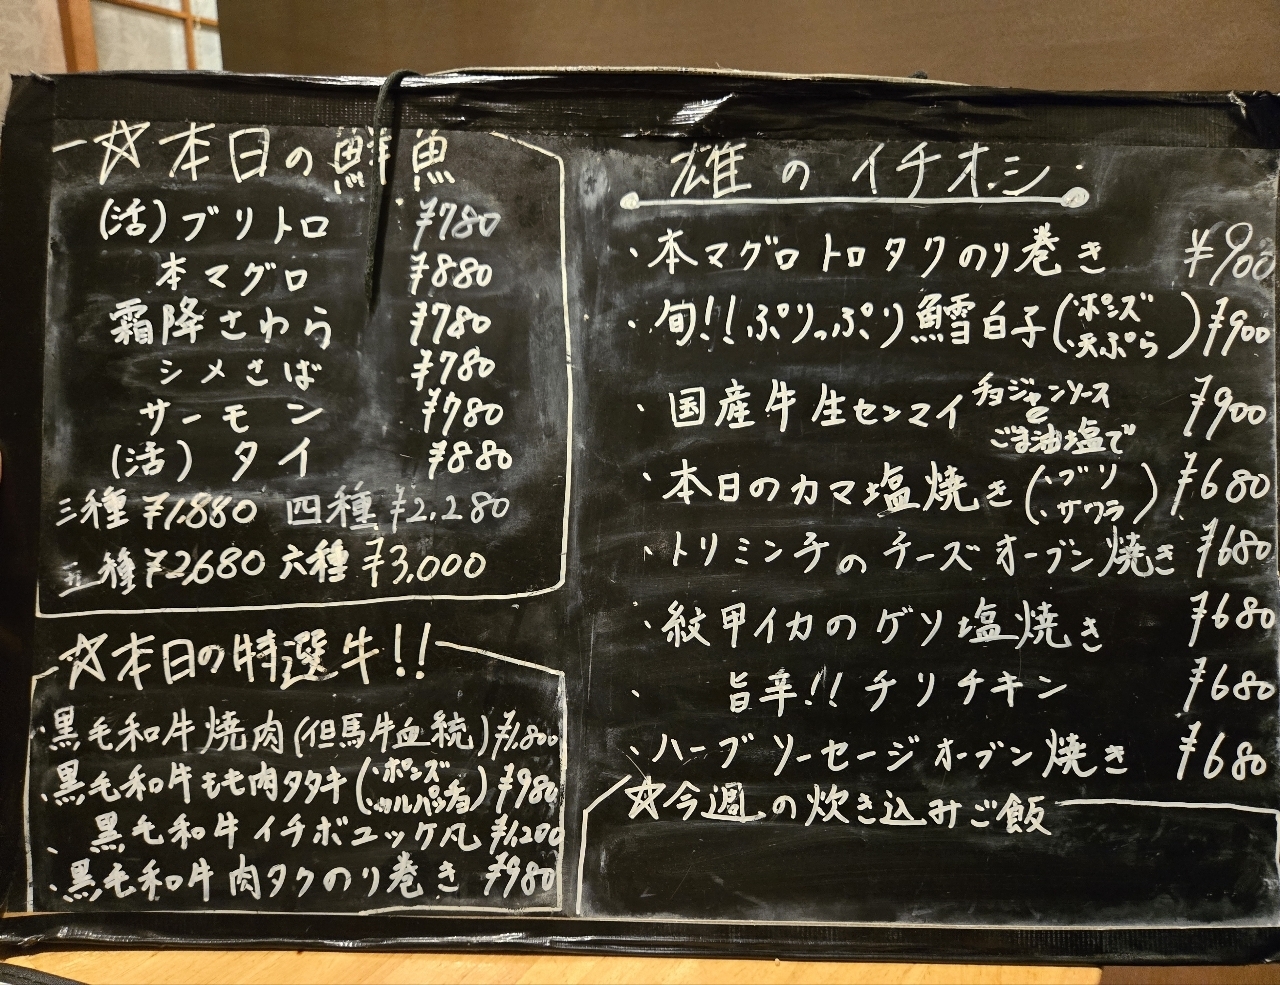 ☆本日の鮮魚
(活)ブリトロ ¥780
本マグロ ¥880
霜降さわら ¥780
シメさば ¥780
サーモン ¥780
(活)タイ ¥880
三種¥1,880 四種¥2,280
五種¥2,680 六種¥3,000
☆本日の特選牛!!
・黒毛和牛焼肉(但馬牛血統)¥1,800
・黒毛和牛もも肉タタキ(・ポンズ ・カルパッチョ)¥980
・黒毛和牛イチボユッケ風 ¥1,200
・黒毛和牛肉タクのり巻き ¥980
雄のイチオシ
・本マグロトロタクのり巻き ¥900
・旬!!ぷりっぷり鱈白子(・ポンズ ・天ぷら)¥900
・国産牛生センマイ チョジャンソースとごま油塩で ¥900
・本日のカマ塩焼き(・ブリ ・サワラ)¥680
・トリミンチのチーズオーブン焼き ¥680
・紋甲イカのゲソ塩焼き ¥680
・旨辛!!チリチキン ¥680
・ハーブソーセージオーブン焼き ¥680
☆今週の炊き込みご飯